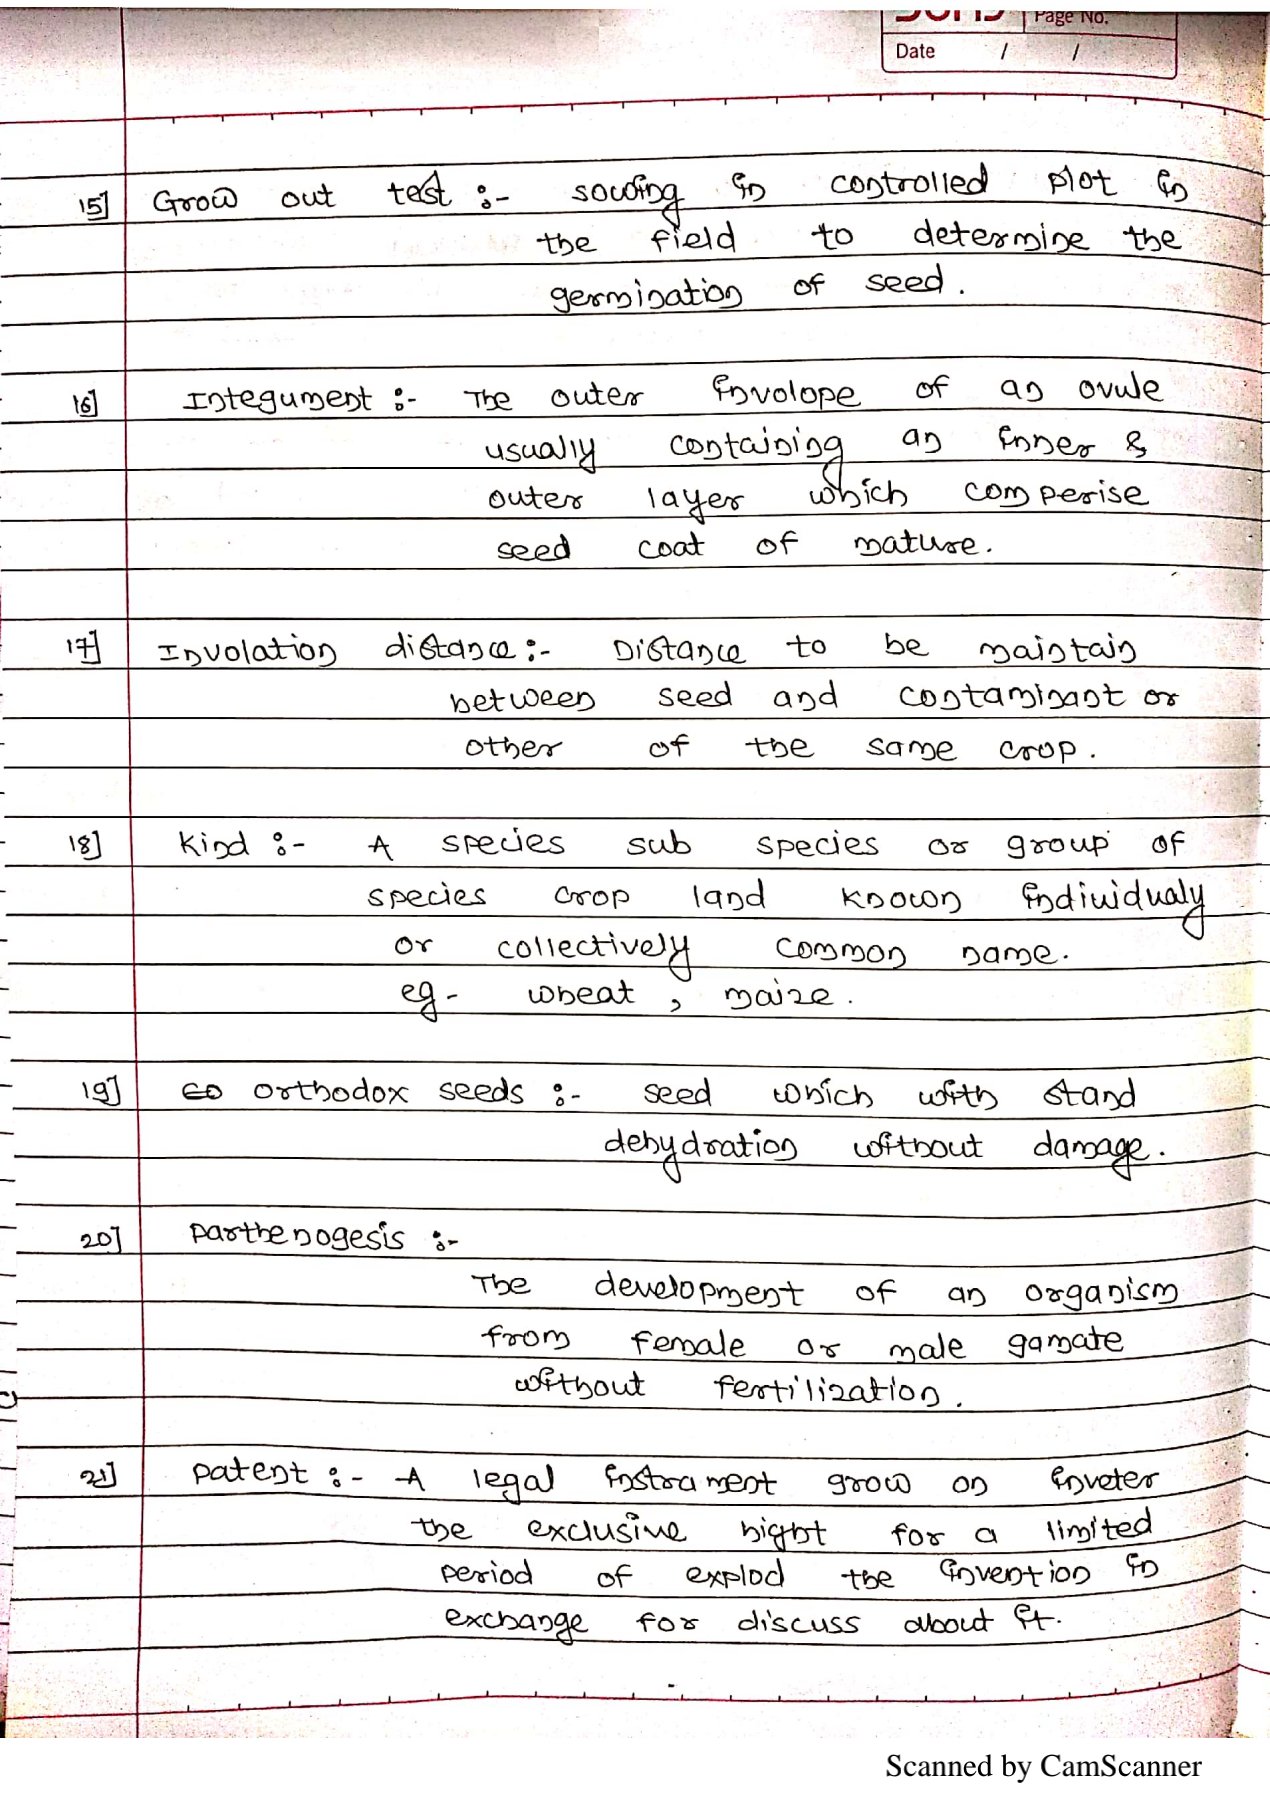 Page No.
Date / /
15] Grow out test :- sowing in controlled plot in
the field to determine the
germination of seed.
16] Integument :- The outer Envolope of an ovule
usually containing an inner &
outer layer which comperise
seed coat of mature.
17] Invulation distance :- Distance to be maintain
between seed and contaminant or
other of the same crop.
18] Kind :- A species sub species or group of
species crop land known individualy
or collectively common name.
eg - wheat , maize.
19] orthodox seeds :- seed which with stand
dehydration without damage.
20] Parthenogesis :-
The development of an organism
from female or male gamate
without fertilization.
21] Patent :- A legal instrament grow on inveter
the exclusive hight for a limited
period of explod the invention in
exchange for discuss about it.
Scanned by CamScanner